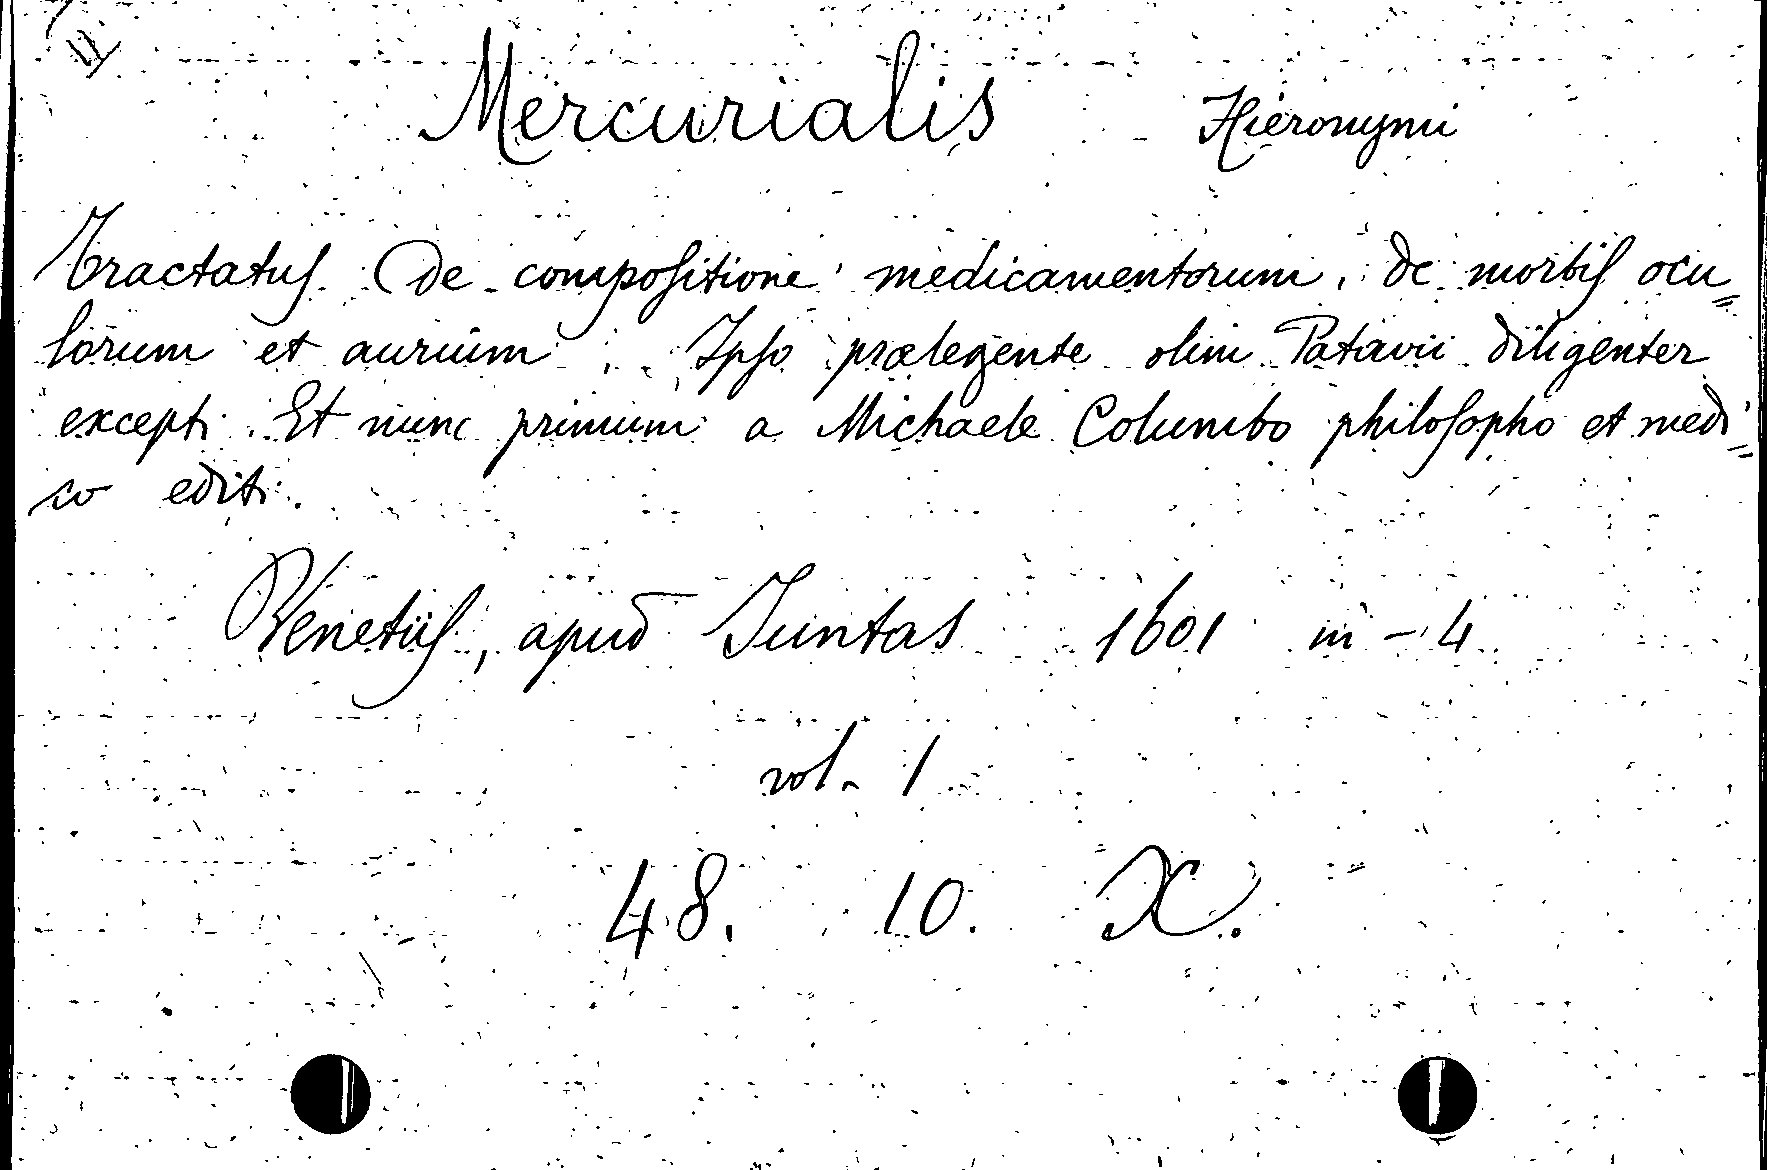 Mercurialis Hieronymi
Tractatus. De compositione medicamentorum. de morbis ocu=
lorum et aurium. Ipso prælegente olim Patavii diligenter
excepti. Et nunc primum a Michaele Columbo philosopho et medi=
co editi.
Venetiis, apud Juntas 1601 in-4
vol. 1
48. 10. X.